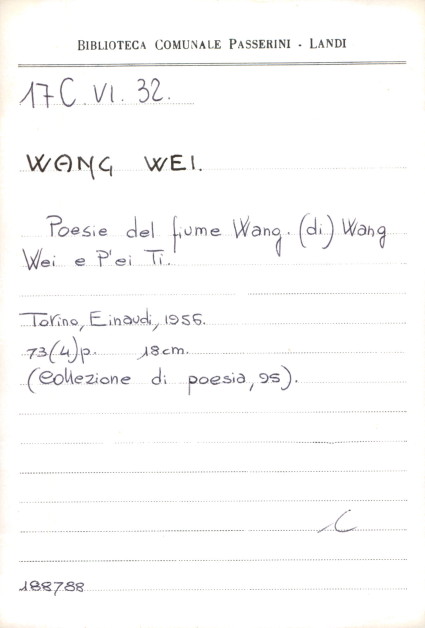 BIBLIOTECA COMUNALE PASSERINI - LANDI
17C. VI. 32.
WANG WEI.
Poesie del fiume Wang. (di) Wang
Wei e P'ei Ti.
Torino, Einaudi, 1956.
73(4)p. 18cm.
(Collezione di poesia, 95).
C
188788